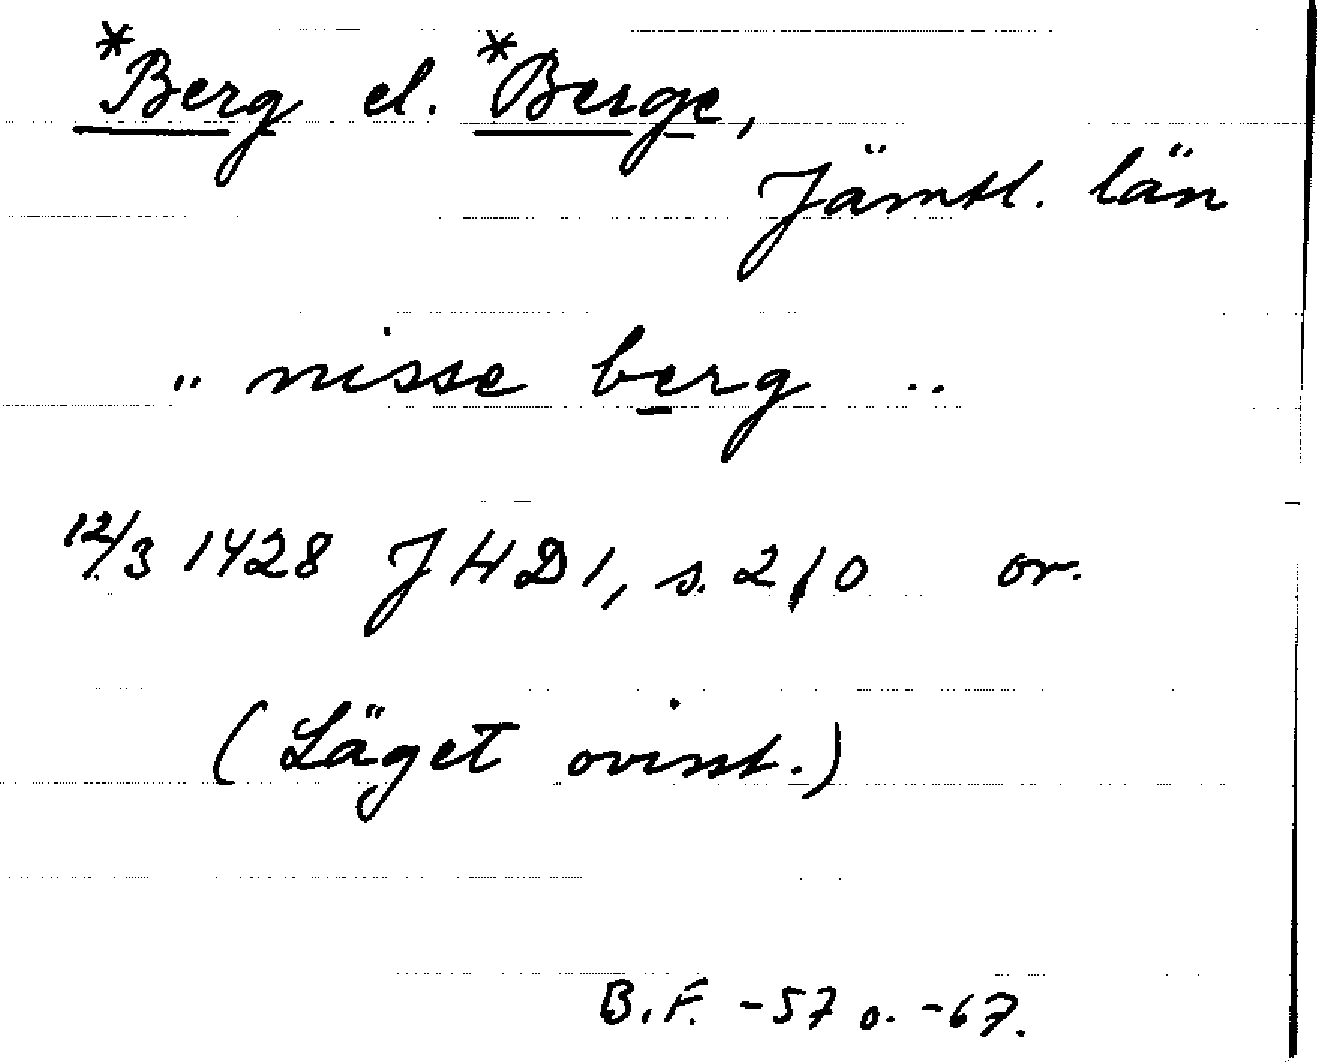 *Berg el. *Berge,
Jämtl. län
.. nisse berg ..
12/3 1428 JHD1, s. 210 or.
(Läget ovisst.)
B.F. -57 o. -67.